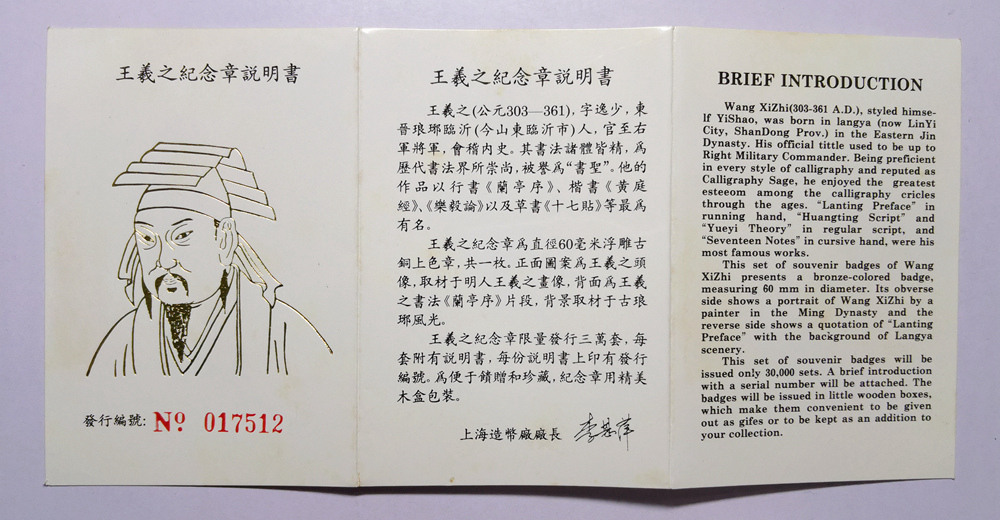 王羲之紀念章説明書
發行編號: Nº 017512
王羲之紀念章説明書
王羲之(公元303—361),字逸少,東
晉琅琊臨沂(今山東臨沂市)人,官至右
軍將軍,會稽内史。其書法諸體皆精,爲
歷代書法界所崇尚,被譽爲“書聖”。他的
作品以行書《蘭亭序》、楷書《黄庭
經》、《樂毅論》以及草書《十七貼》等最爲
有名。
王羲之紀念章爲直徑60毫米浮雕古
銅上色章,共一枚。正面圖案爲王羲之頭
像,取材于明人王羲之畫像,背面爲王羲
之書法《蘭亭序》片段,背景取材于古琅
琊風光。
王羲之紀念章限量發行三萬套,每
套附有説明書,每份説明書上印有發行
編號。爲便于饋贈和珍藏,紀念章用精美
木盒包裝。
上海造幣廠廠長
BRIEF INTRODUCTION
Wang XiZhi(303-361 A.D.), styled himse-
lf YiShao, was born in langya (now LinYi
City, ShanDong Prov.) in the Eastern Jin
Dynasty. His official tittle used to be up to
Right Military Commander. Being preficient
in every style of calligraphy and reputed as
Calligraphy Sage, he enjoyed the greatest
esteeom among the calligraphy cricles
through the ages. “Lanting Preface” in
running hand, “Huangting Script” and
“Yueyi Theory” in regular script, and
“Seventeen Notes” in cursive hand, were his
most famous works.
This set of souvenir badges of Wang
XiZhi presents a bronze-colored badge,
measuring 60 mm in diameter. Its obverse
side shows a portrait of Wang XiZhi by a
painter in the Ming Dynasty and the
reverse side shows a quotation of “Lanting
Preface” with the background of Langya
scenery.
This set of souvenir badges will be
issued only 30,000 sets. A brief introduction
with a serial number will be attached. The
badges will be issued in little wooden boxes,
which make them convenient to be given
out as gifes or to be kept as an addition to
your collection.